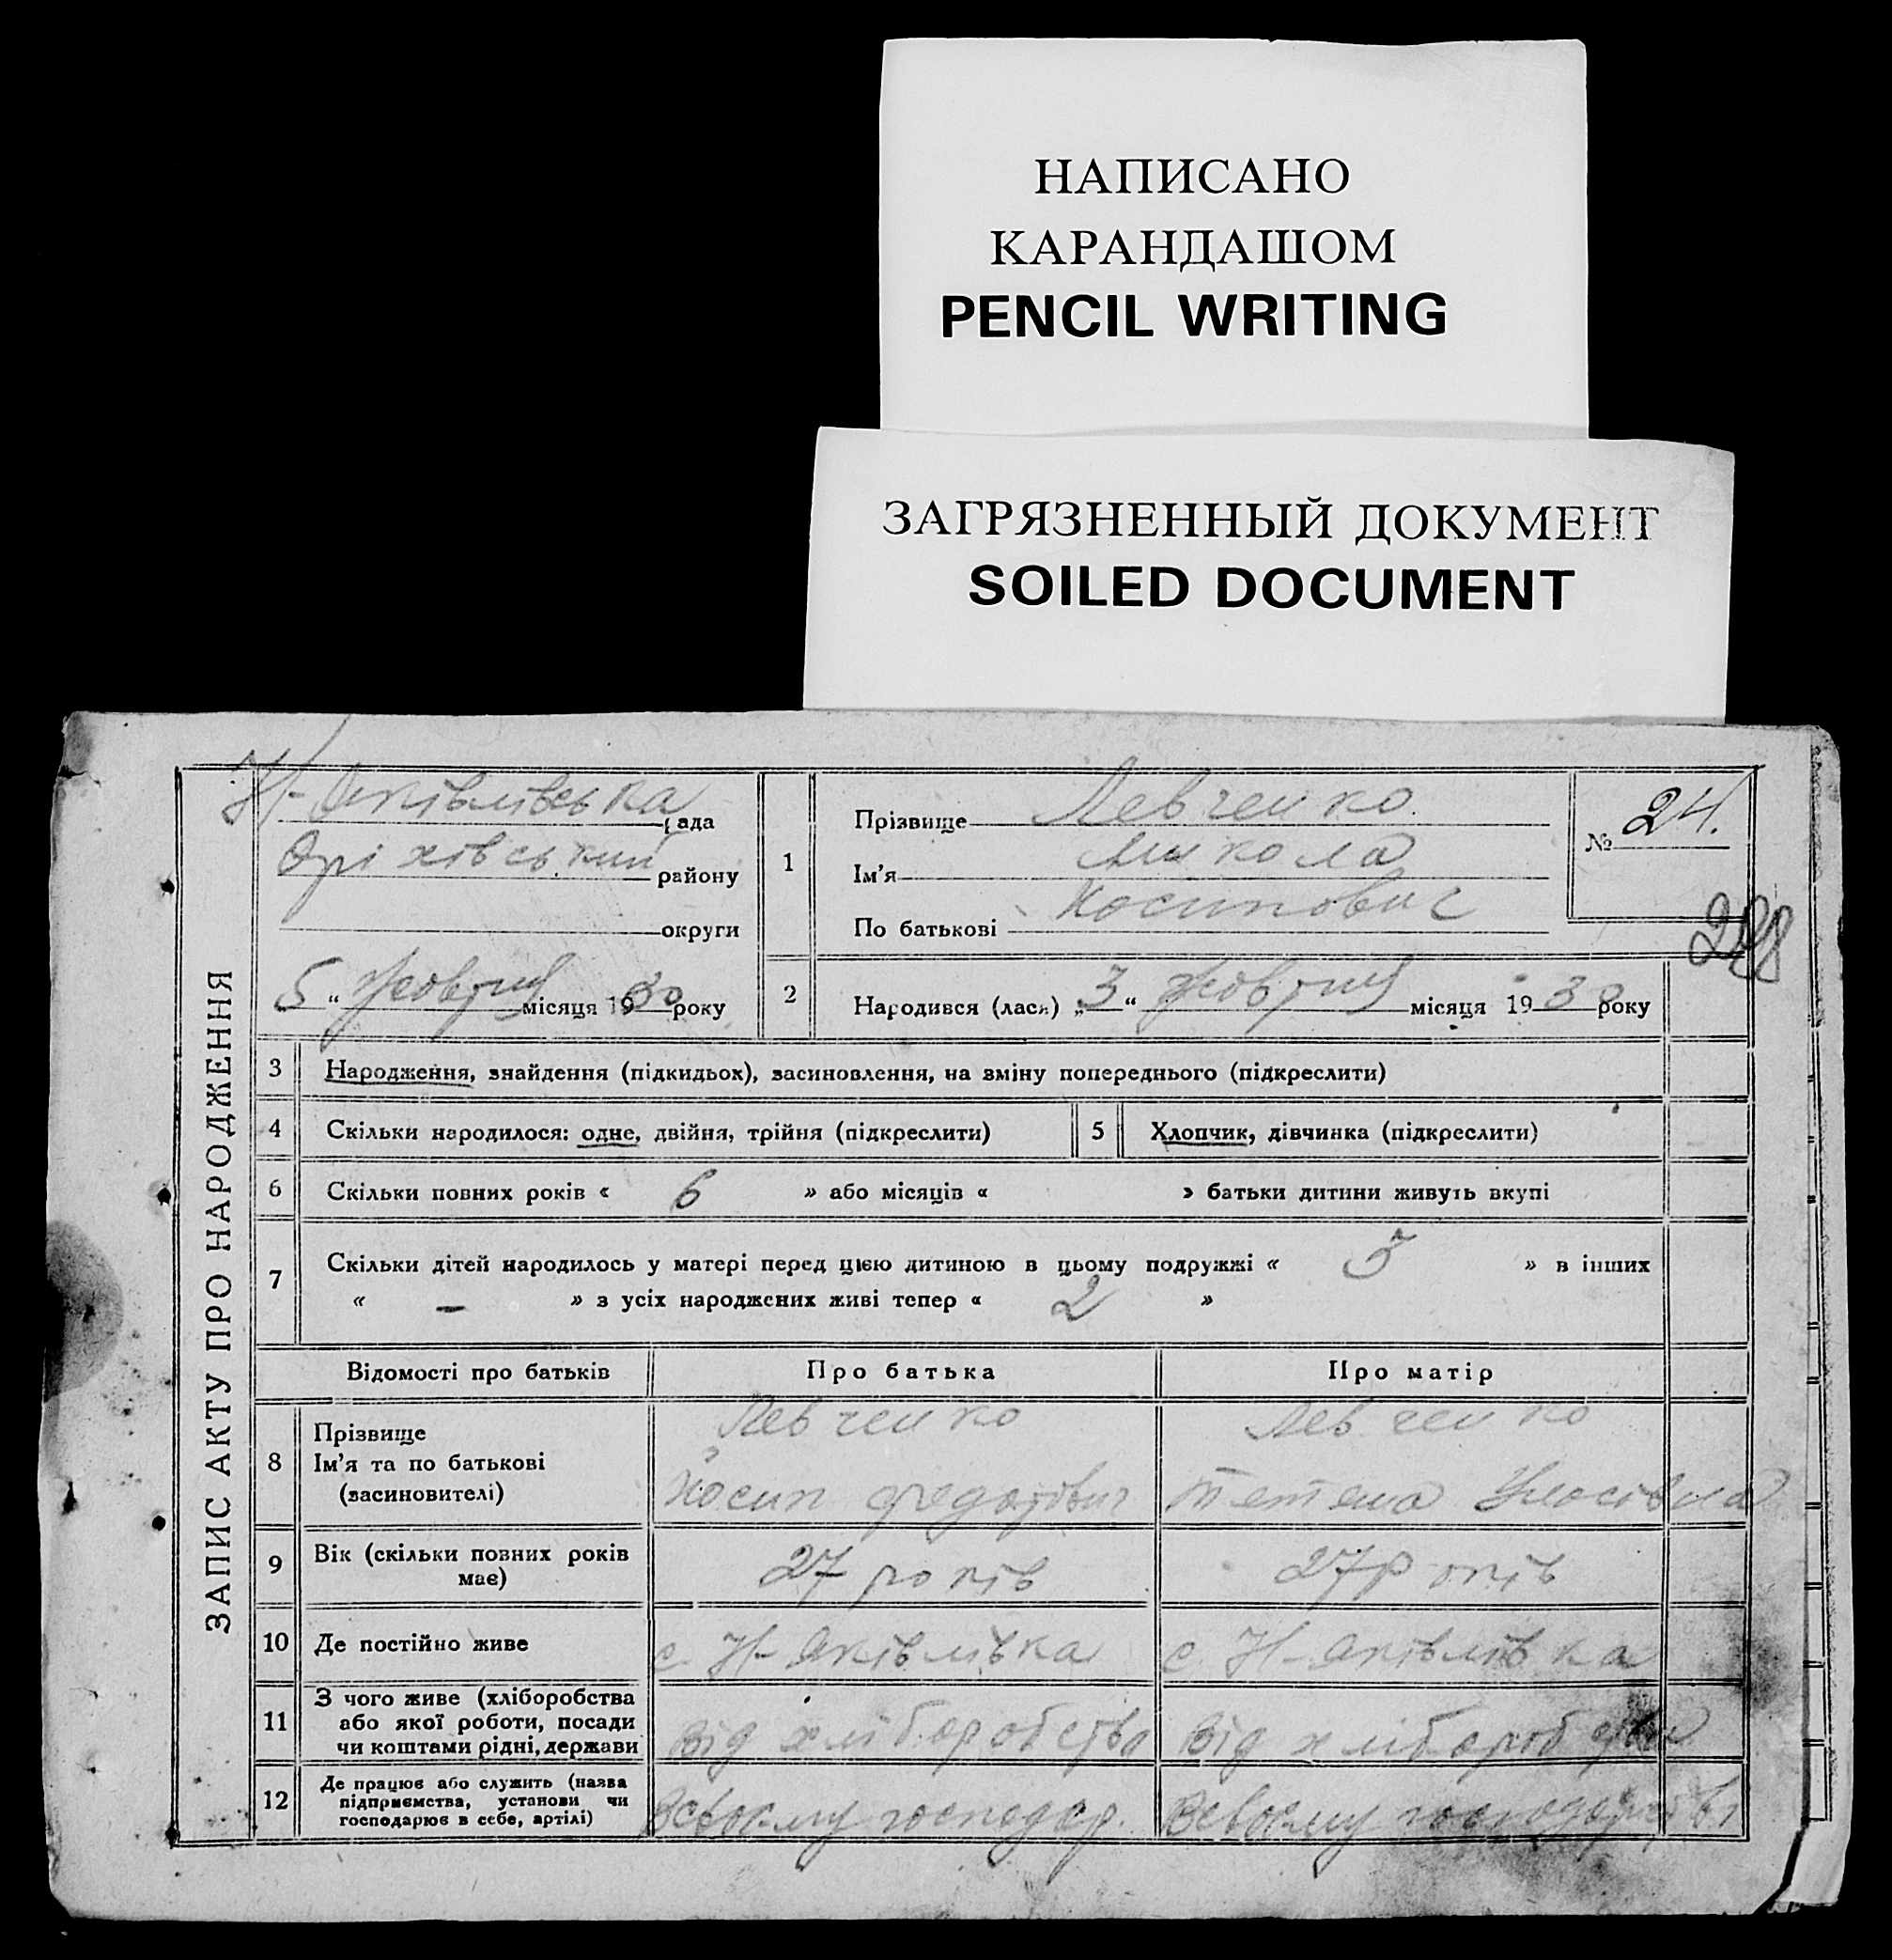 НАПИСАНО
КАРАНДАШОМ
PENCIL WRITING
ЗАГРЯЗНЕННЫЙ ДОКУМЕНТ
SOILED DOCUMENT
ЗАПИС АКТУ ПРО НАРОДЖЕННЯ
Н-Яківлівська рада
Оріхівський району
округи
5 “ Жовтня місяця 1930 року
1
Прізвище Левченко
Ім'я Микола
По батькові Йосипович
№ 24.
228
2 Народився (лася) „3“ Жовтня місяця 1930 року
3 Народження, знайдення (підкидьох), засиновлення, на зміну попереднього (підкреслити)
4 Скільки народилося: одне, двійня, трійня (підкреслити) 5 Хлопчик, дівчинка (підкреслити)
6 Скільки повних років « 6 » або місяців « » батьки дитини живуть вкупі
7 Скільки дітей народилось у матері перед цією дитиною в цьому подружжі « 3 » в інших
« – » з усіх народжених живі тепер « 2 »
Відомості про батьків Про батька Про матір
8 Прізвище Левченко Левченко
Ім'я та по батькові Йосип Федотович Тетяна
(засиновителі)
9 Вік (скільки повних років має) 27 років 27 років
10 Де постійно живе с. Н-Яківлівка с. Н-Яківлівка
11 З чого живе (хліборобства
або якої роботи, посади
чи коштами рідні, держави Від хліборобства Від хліборобства
12 Де працює або служить (назва
підприємства, установи чи
господарює в себе, артілі) Всвоєму господар. Всвоєму господарстві